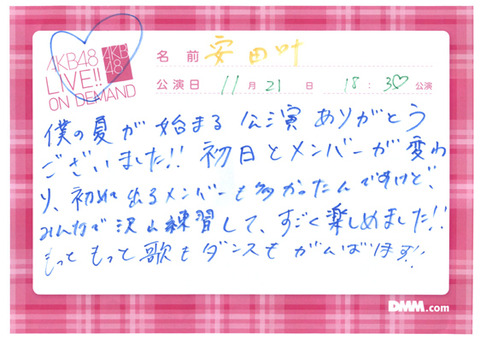 AKB48
LIVE!!
ON DEMAND
AKB
48
名前 安田叶
公演日 11月21日 18:30公演
僕の夏が始まる 公演 ありがとう
ございました!! 初日とメンバーが変わ
り、初めて出るメンバーも多かったんですけど、
みんなで沢山練習して、すごく楽しめました!!
もっともっと歌もダンスもがんばるます!
DMM.com